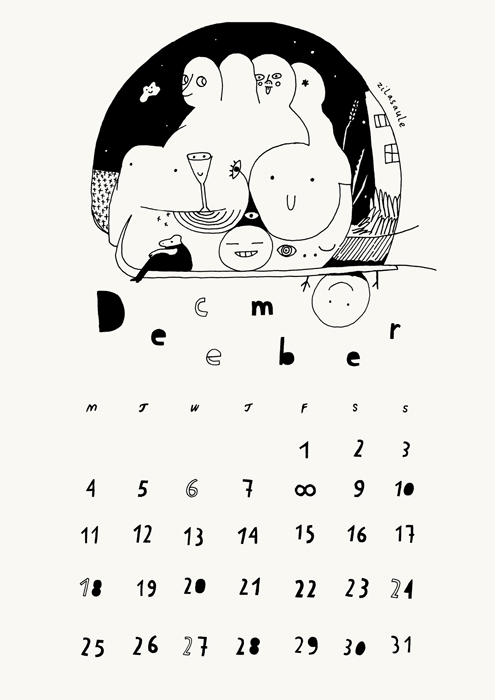 zilasaule
December
M J W J F S S
1 2 3
4 5 6 7 ∞ 9 10
11 12 13 14 15 16 17
18 19 20 21 22 23 24
25 26 27 28 29 30 31